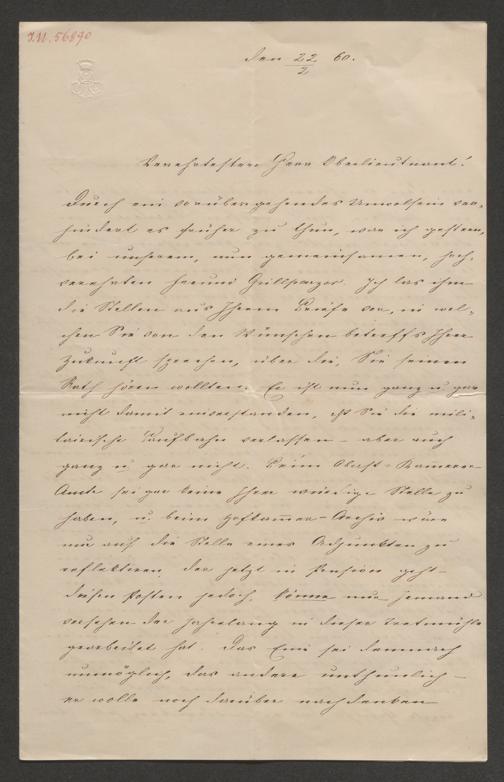 I.N. 56890
den 22/2 60.
Verehrtester Herr Oberlieutnant!
Durch ein vorübergehendes Unwolsein ver-
hindert es früher zu thun, war ich gestern,
bei unserem, nun gemeinsamen, hoch-
verehrten Freund Grillparzer. Ich las ihm
die Stellen aus Ihrem Briefe vor, in wel-
chen Sie von den Wünschen betreffs Ihrer
Zukunft sprechen, über die, Sie seinen
Rath hören wollten. Er ist nun ganz u gar
nicht damit einverstanden, dß Sie die mili-
tairische Laufbahn verlassen – aber auch
ganz u gar nicht. Beim Oberst-Kämmerer-
Amte sei gar keine Ihrer würdige Stelle zu
haben, u. beim Hofkammer-Archiv wäre
nur auf die Stelle eines Adjunkten zu
reflektiren, der jetzt in Pension geht –
diesen Posten jedoch könne nur jemand
versehen der jahrelang in dieser Tretmühle
gearbeitet hat. Das Eine sei demnach
unmöglich, das andere unthunlich –
er wolle noch darüber nachdenken